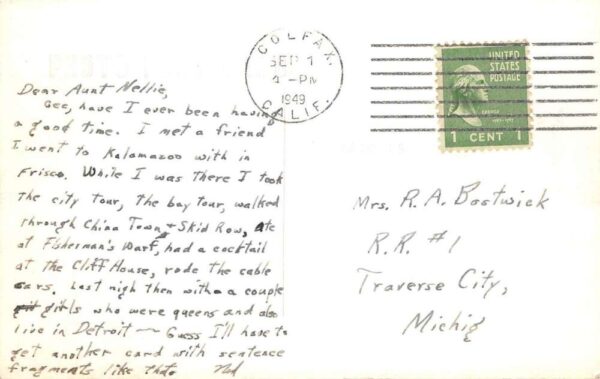 COLFAX,
SEP 1
4-PM
1949
CALIF.
UNITED
STATES
POSTAGE
1 CENT 1
Dear Aunt Nellie,
Gee, have I ever been having
a good time. I met a friend
I went to Kalamazoo with in
Frisco. While I was there I took
the city tour, the bay tour, walked
through China Town & Skid Row, ate
at Fisherman's Warf, had a cocktail
at the Cliff House, rode the cable
cars. Last nigh then with a couple
girls who were queens and also
live in Detroit — Guess I'll have to
get another card with sentence
fragments like that.
Mrs. R. A. Bostwick
R.R. #1
Traverse City,
Michig